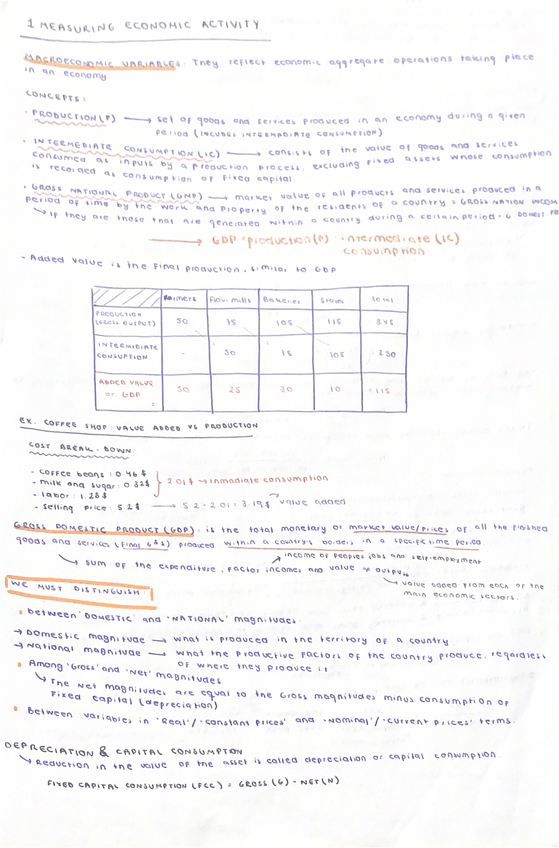 1 MEASURING ECONOMIC ACTIVITY
MACROECONOMIC VARIABLES: They reflect economic aggregate operations taking place
in an economy
CONCEPTS:
· PRODUCTION(P) → set of goods and services produced in an economy during a given
period (INCLUDES INTERMADIATE CONSUMPTION)
· INTERMEDIATE CONSUMPTION (IC) → consists of the value of goods and services
consumed as inputs by a production process, excluding fixed assets whose consumption
is recorded as consumption of fixed capital.
· GROSS NATIONAL PRODUCT (GNP) → market value of all products and services produced in a
period of time by the work and property of the residents of a country = GROSS NATION INCOM
↳ if they are those that are generated within a country during a certain period = G. DOMEST. PR
→ GDP = production(P) - intermediate (IC)
consumption
- Added value is the final production, similar to GDP
Farmers Flour mills Bakeries Stores total
PRODUCTION (GROSS OUTPUT) 50 75 105 115 345
INTERMIDIATE CONSUPTION - 50 75 105 230
ADDED VALUE or GDP 50 25 30 10 115
EX. COFFEE SHOP: VALUE ADDED VS PRODUCTION
COST BREAK-DOWN:
- coffee beans: 0.46$
- milk and sugar: 0.32$ } 2.01$ → inmadiate consumption
- labor: 1.23$
- selling price: 5.2$ → 5.2 - 2.01 = 3.19$ value added
GROSS DOMESTIC PRODUCT (GDP): is the total monetary or market value/prices of all the finished
goods and services (final G&S) produced within a country's borders in a specific time period
income of peoples jobs and self-employment
↳ sum of the expenditure, factor incomes and value output
↳ value added from each of the
main economic sectors.
WE MUST DISTINGUISH:
· Between 'DOMESTIC' and 'NATIONAL' magnitudes.
→ Domestic magnitude → what is produced in the territory of a country
→ National magnitude → what the productive factors of the country produce, regardless
of where they produce it
· Among 'Gross' and 'Net' magnitudes
↳ The Net magnitudes are equal to the Gross magnitudes minus consumption of
Fixed capital (depreciation)
· Between variables in 'Real'/'constant prices' and 'Nominal'/'current prices' terms.
DEPRECIATION & CAPITAL CONSUMPTION
↳ Reduction in the value of the asset is called depreciation or capital consumption
FIXED CAPITAL CONSUMPTION (FCC) = GROSS (G) - NET(N)